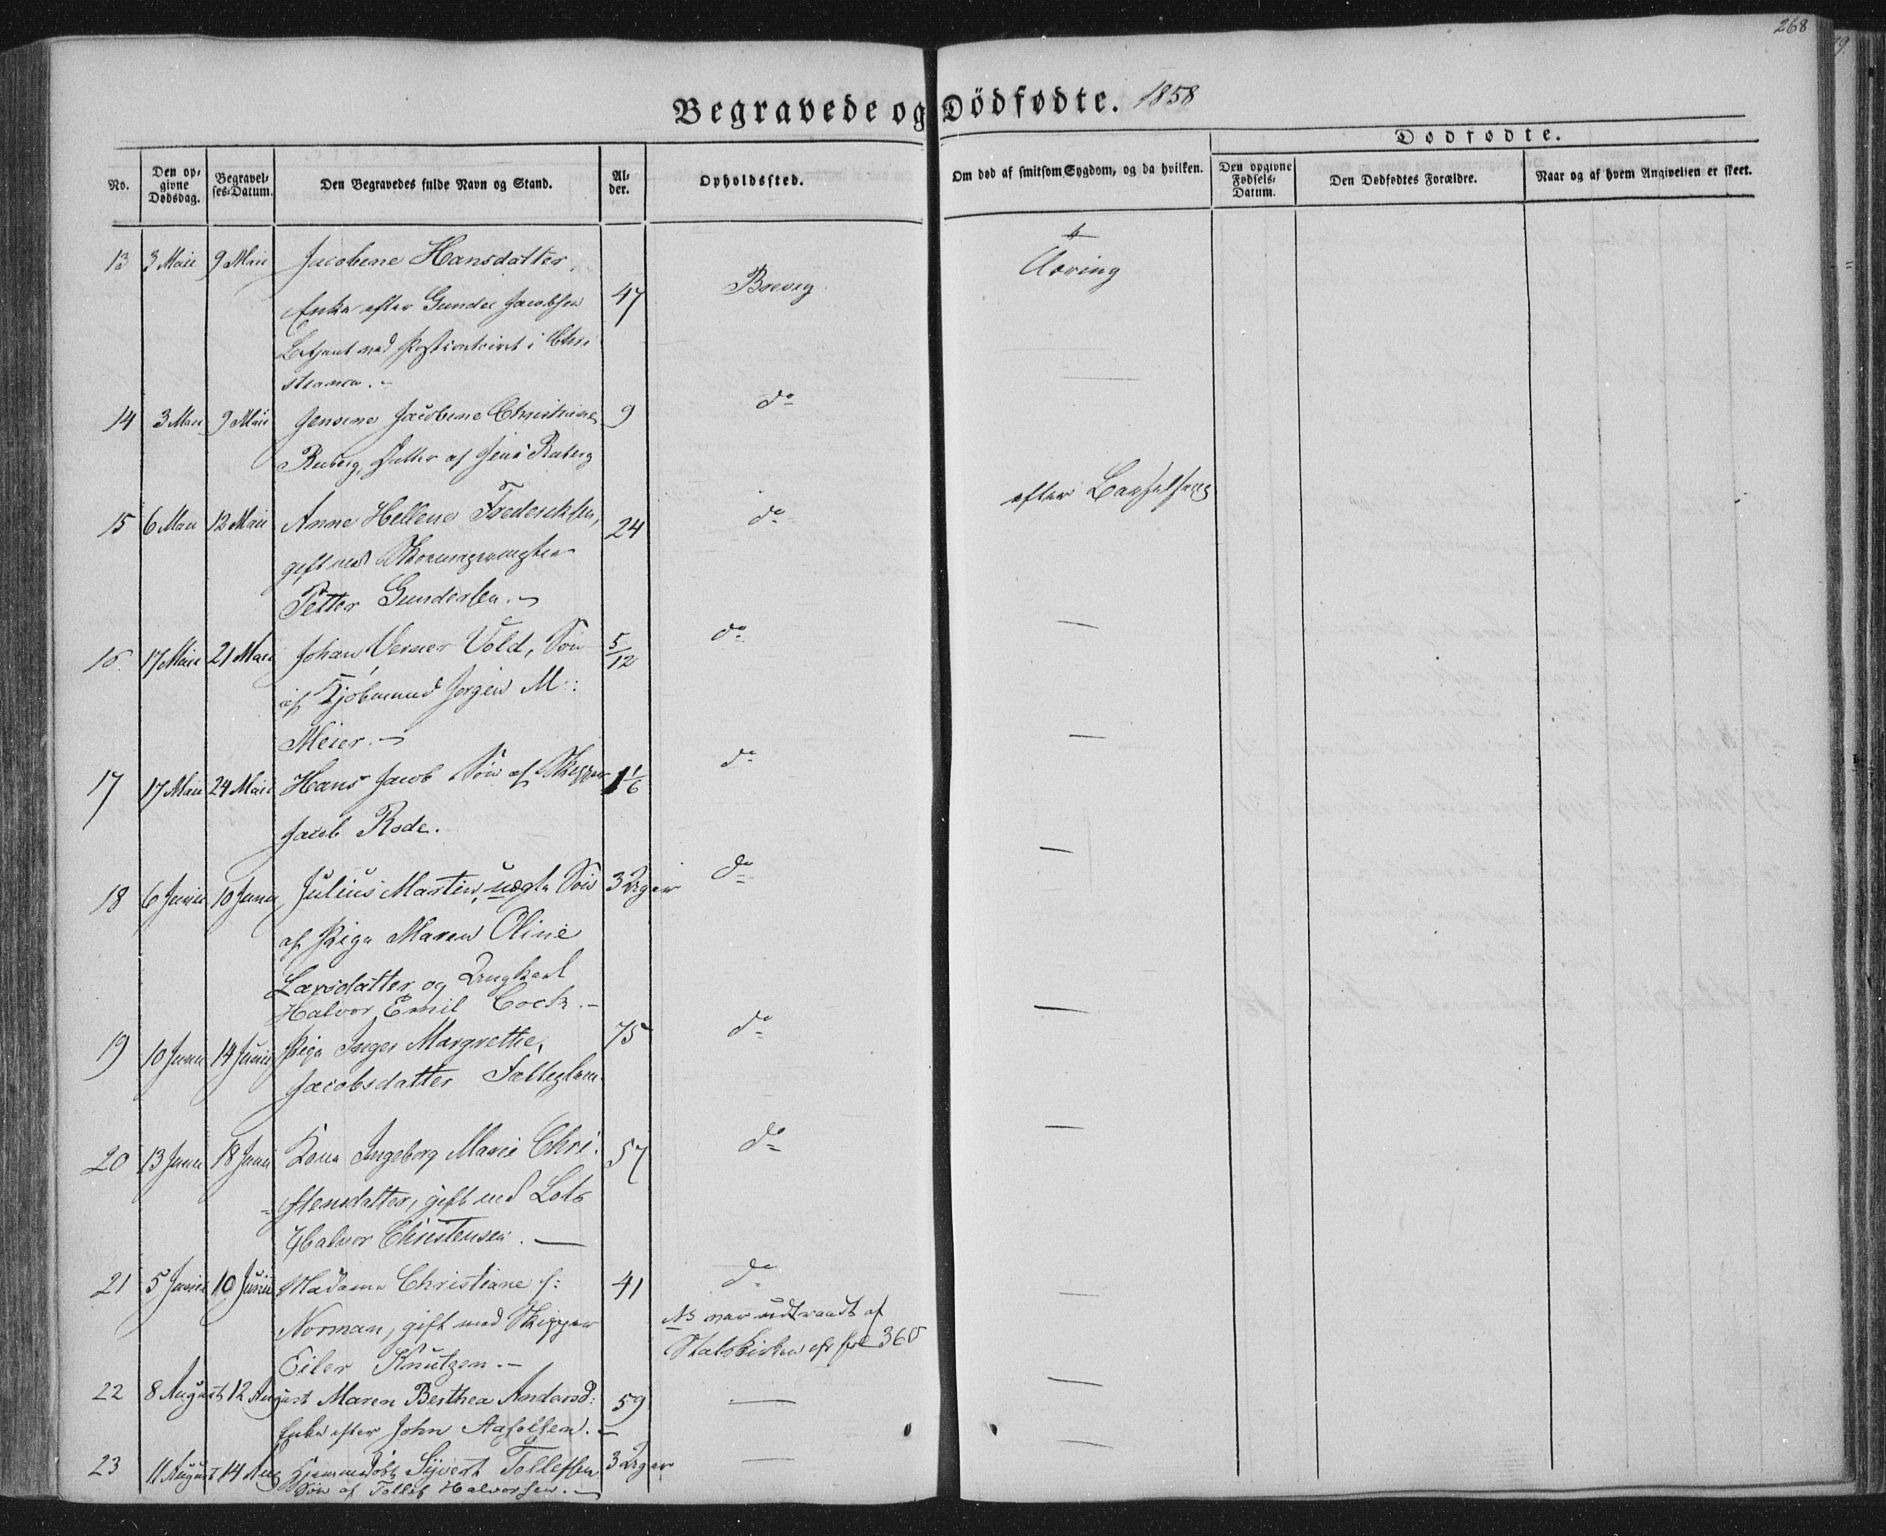 268
Begravede og Dödfødte. 1858
Dødfødte.
No.
Den opgivne Dødsdag.
Begravelses-Datum.
Den Begravedes fulde Navn og Stand.
Alder.
Opholdssted.
Om død af smitsom Sygdom, og da hvilken.
Den opgivne Fødsels-Datum.
Den Dødfødtes Forældre.
Naar og af hvem Angivelsen er skeet.
13 3 Maii 9 Maii Jacobene Hansdatter,
Enke efter Gunder Jacobsen 47 Brevig
Betjent ved Postcontoiret i Chri
stiania. -
14 3 Maii 9 Maii Jensine Jacobine Christiane 9 do
Ruberg, Datter af Jens Ruberg
15 6 Maii 12 Maii Anne Hellene Fredericksen, 24 do efter Barselseng
gift med
Petter Gundersen. -
16. 17 Maii 21 Maii Johan Verner Vold, Søn 5/12 do —
af Kjøbmand Jørgen M:
Meier. -
17 17 Maii 24 Maii Hans Jacob Søn af Skipper 1 1/6 do —
Jacob Rode.
18 6 Junii 10 Junii Julius Martin, uægte Søn 3 Uger do —
af Pige Maren Oline
Larsdatter og Ungkarl
Halvor Emil Cock. -
19 10 Junii 14 Junii Pige Inger Margrethe, 75 do —
Jacobsdatter Fattiglem
20 13 Junii 18 Junii Kone Ingeborg Marie Chri- 57 do —
stensdatter, gift med Lods
Halvor Christensen. —
21 5 Junii 10 Junii Madame Christiane f: 41 do —
Norman, gift med Skipper NB var udtraadt af
Eiler Knutzen. - Statskirken cfr fol 360
22 8 August 12 August Maren Berthea Andersd: 59 — —
Enke efter John Aspelsen. -
23 11 August 14 Aug Hjemmedøbt Syvert Tollefsen 3 Uger — —
Søn af Tollef Halvorsen. -